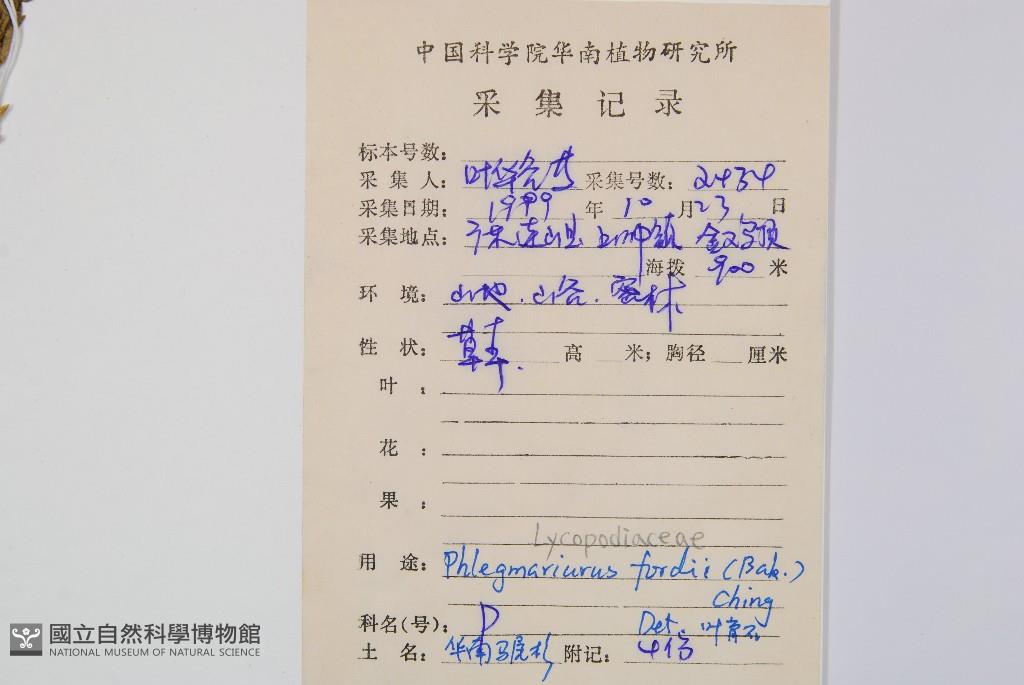 中国科学院华南植物研究所
采集记录
标本号数:
采集人: 叶华谷 采集号数: 2434
采集日期: 1999 年 10 月 23 日
采集地点: 广东连山县 上帅镇
海拨 900 米
环境: 山地.山谷.密林
性状: 草本. 高 米; 胸径 厘米
叶:
花:
果:
Lycopodiaceae
用途: Phlegmariurus fordii (Bak.)
Ching
科名(号): P Det. 叶育石
土名: 华南马尾杉 附记: 4份
國立自然科學博物館
NATIONAL MUSEUM OF NATURAL SCIENCE